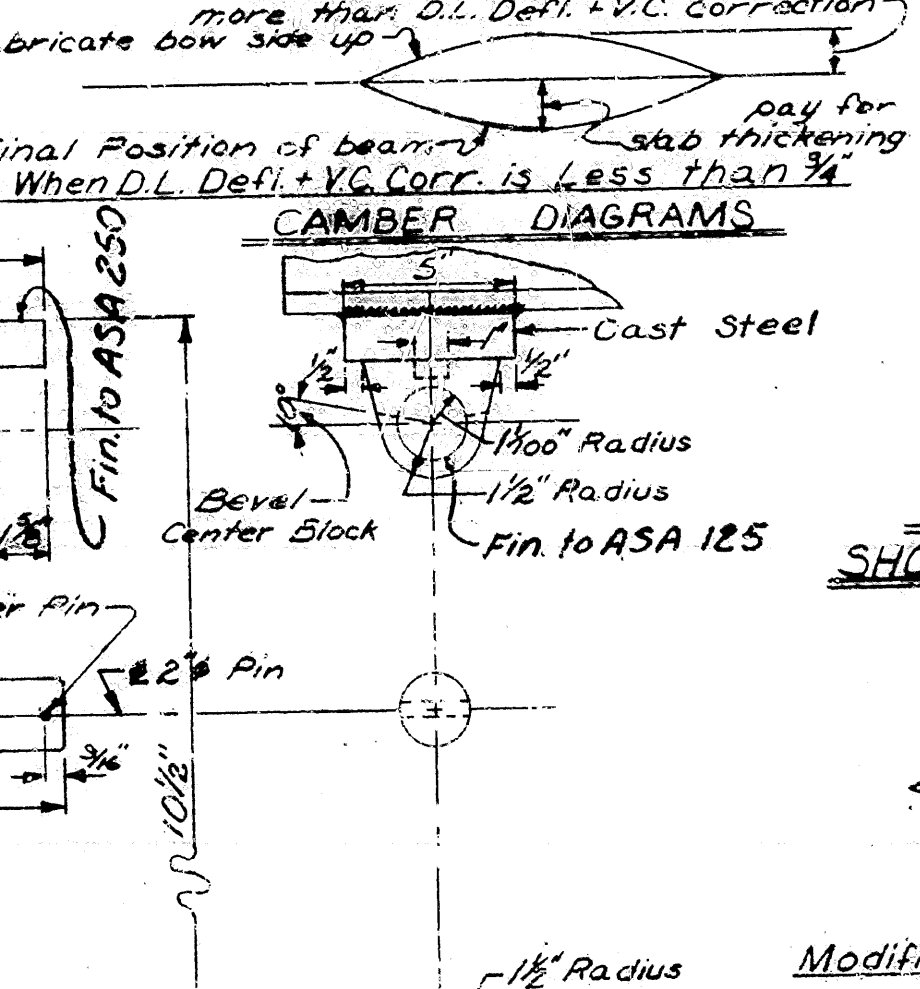 more than D.L. Defl. + V.C. Correction
bricate bow side up
pay for
slab thickening
inal Position of beam
When D.L. Defl. + V.C. Corr. is Less than 3/4"
CAMBER DIAGRAMS
5"
Fin. to ASA 250
Cast Steel
1"
1/2"
1/2"
10°
1 1/100" Radius
1 1/2" Radius
Bevel
Center Block
Fin. to ASA 125
SHO
er Pin
2"ø Pin
9/16"
10 1/2"
1 1/2" Radius
Modifi